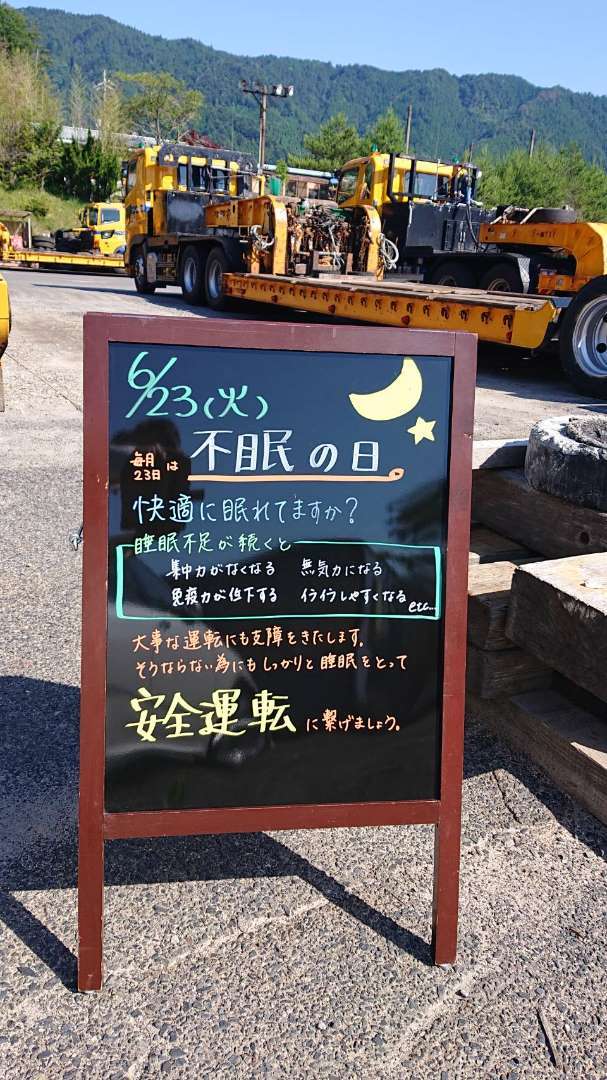 6/23(火)
毎月
23日 は 不眠の日
快適に眠れてますか?
睡眠不足が続くと
集中力がなくなる 無気力になる
免疫力が低下する イライラしやすくなる
etc...
大事な運転にも支障をきたします。
そうならない為にもしっかりと睡眠をとって
安全運転 に繋げましょう。